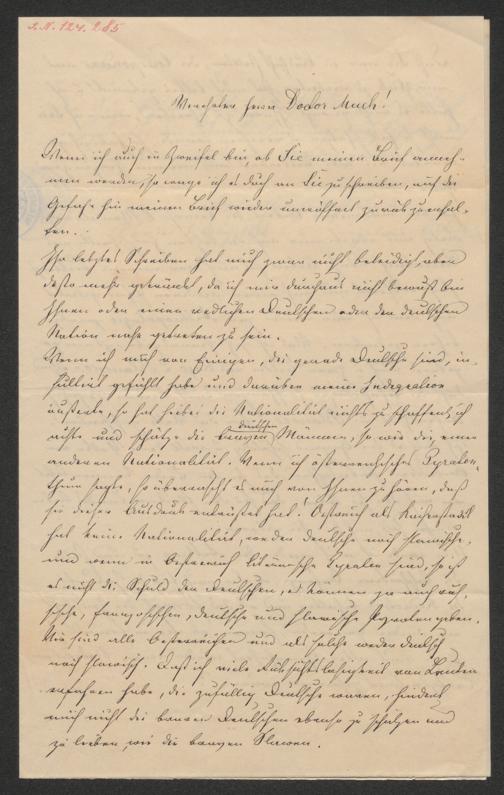 I.N. 124.285
Verehrter Herr Doctor Much!
Wenn ich auch in Zweifel bin, ob Sie meinen Brief anneh-
men werden, so wage ich es doch an Sie zu schreiben, auf die
Gefahr hin meinen Brief wieder uneröffnet zurück zu erhal-
ten.
Ihr letztes Schreiben hat mich zwar nicht beleidigt, aber
desto mehr gekränkt, da ich mir durchaus nicht bewußt bin
Ihnen oder einen redlichen Deutschen oder der deutschen
Nation nahe getreten zu sein.
Wenn ich mich von Einigen, die gerade Deutsche sind, in-
sultirt gefühlt habe und darüber meine Indegnation
äußerte, so hat hiebei die Nationalität nichts zu schaffen, ich
achte und schätze die braven deutschen Männer, so wie die, einer
anderen Nationalität. Wenn ich österreichisches Pyraten-
thum sagte, so überrascht es mich von Ihnen zu hören, daß
sie dieser Ausdruck entrüstet hat! Oestreich als Kaiserstadt
hat keine Nationalität, weder deutsche noch slawische,
und wenn in Oestreich literarische Pyraten sind, so ist
es nicht die Schuld der Deutschen, es können ja auch rus-
sische, französischen, deutsche und slawische Pyraten geben.
Wir sind alle Oesterreicher und als solche weder deutsch
noch slawisch. Daß ich viele Rücksichtslosigkeit von Leuten
erfahren habe, die zufällig Deutsche waren, hindert
mich nicht die braven Deutschen ebenso zu schätzen und
zu lieben, wie die braven Slawen.